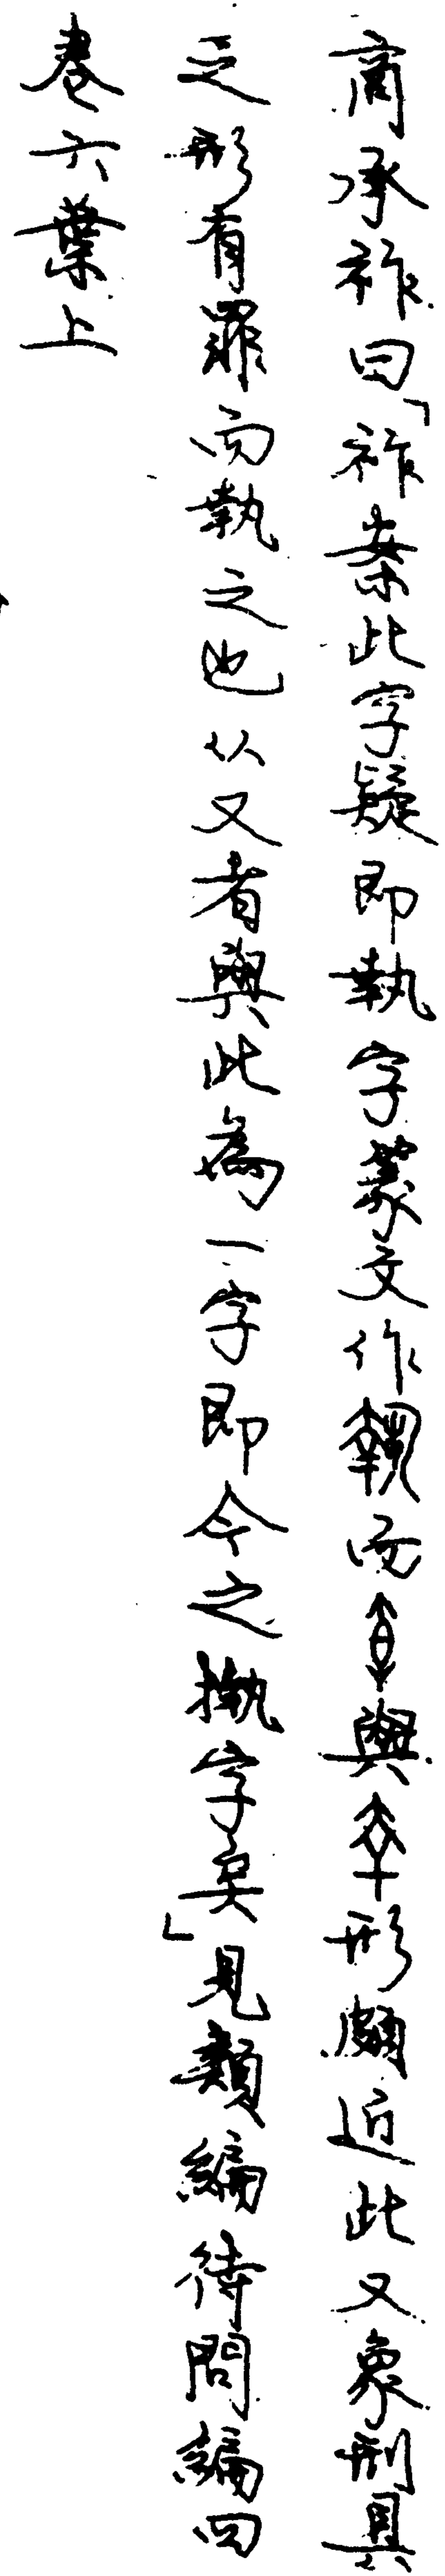 商承祚曰「祚案此字疑即執字篆文作而與形頗近此又象刑具
之形有罪而執之也从又者與此為一字即今之執字矣」見類編待問編四
卷六葉上